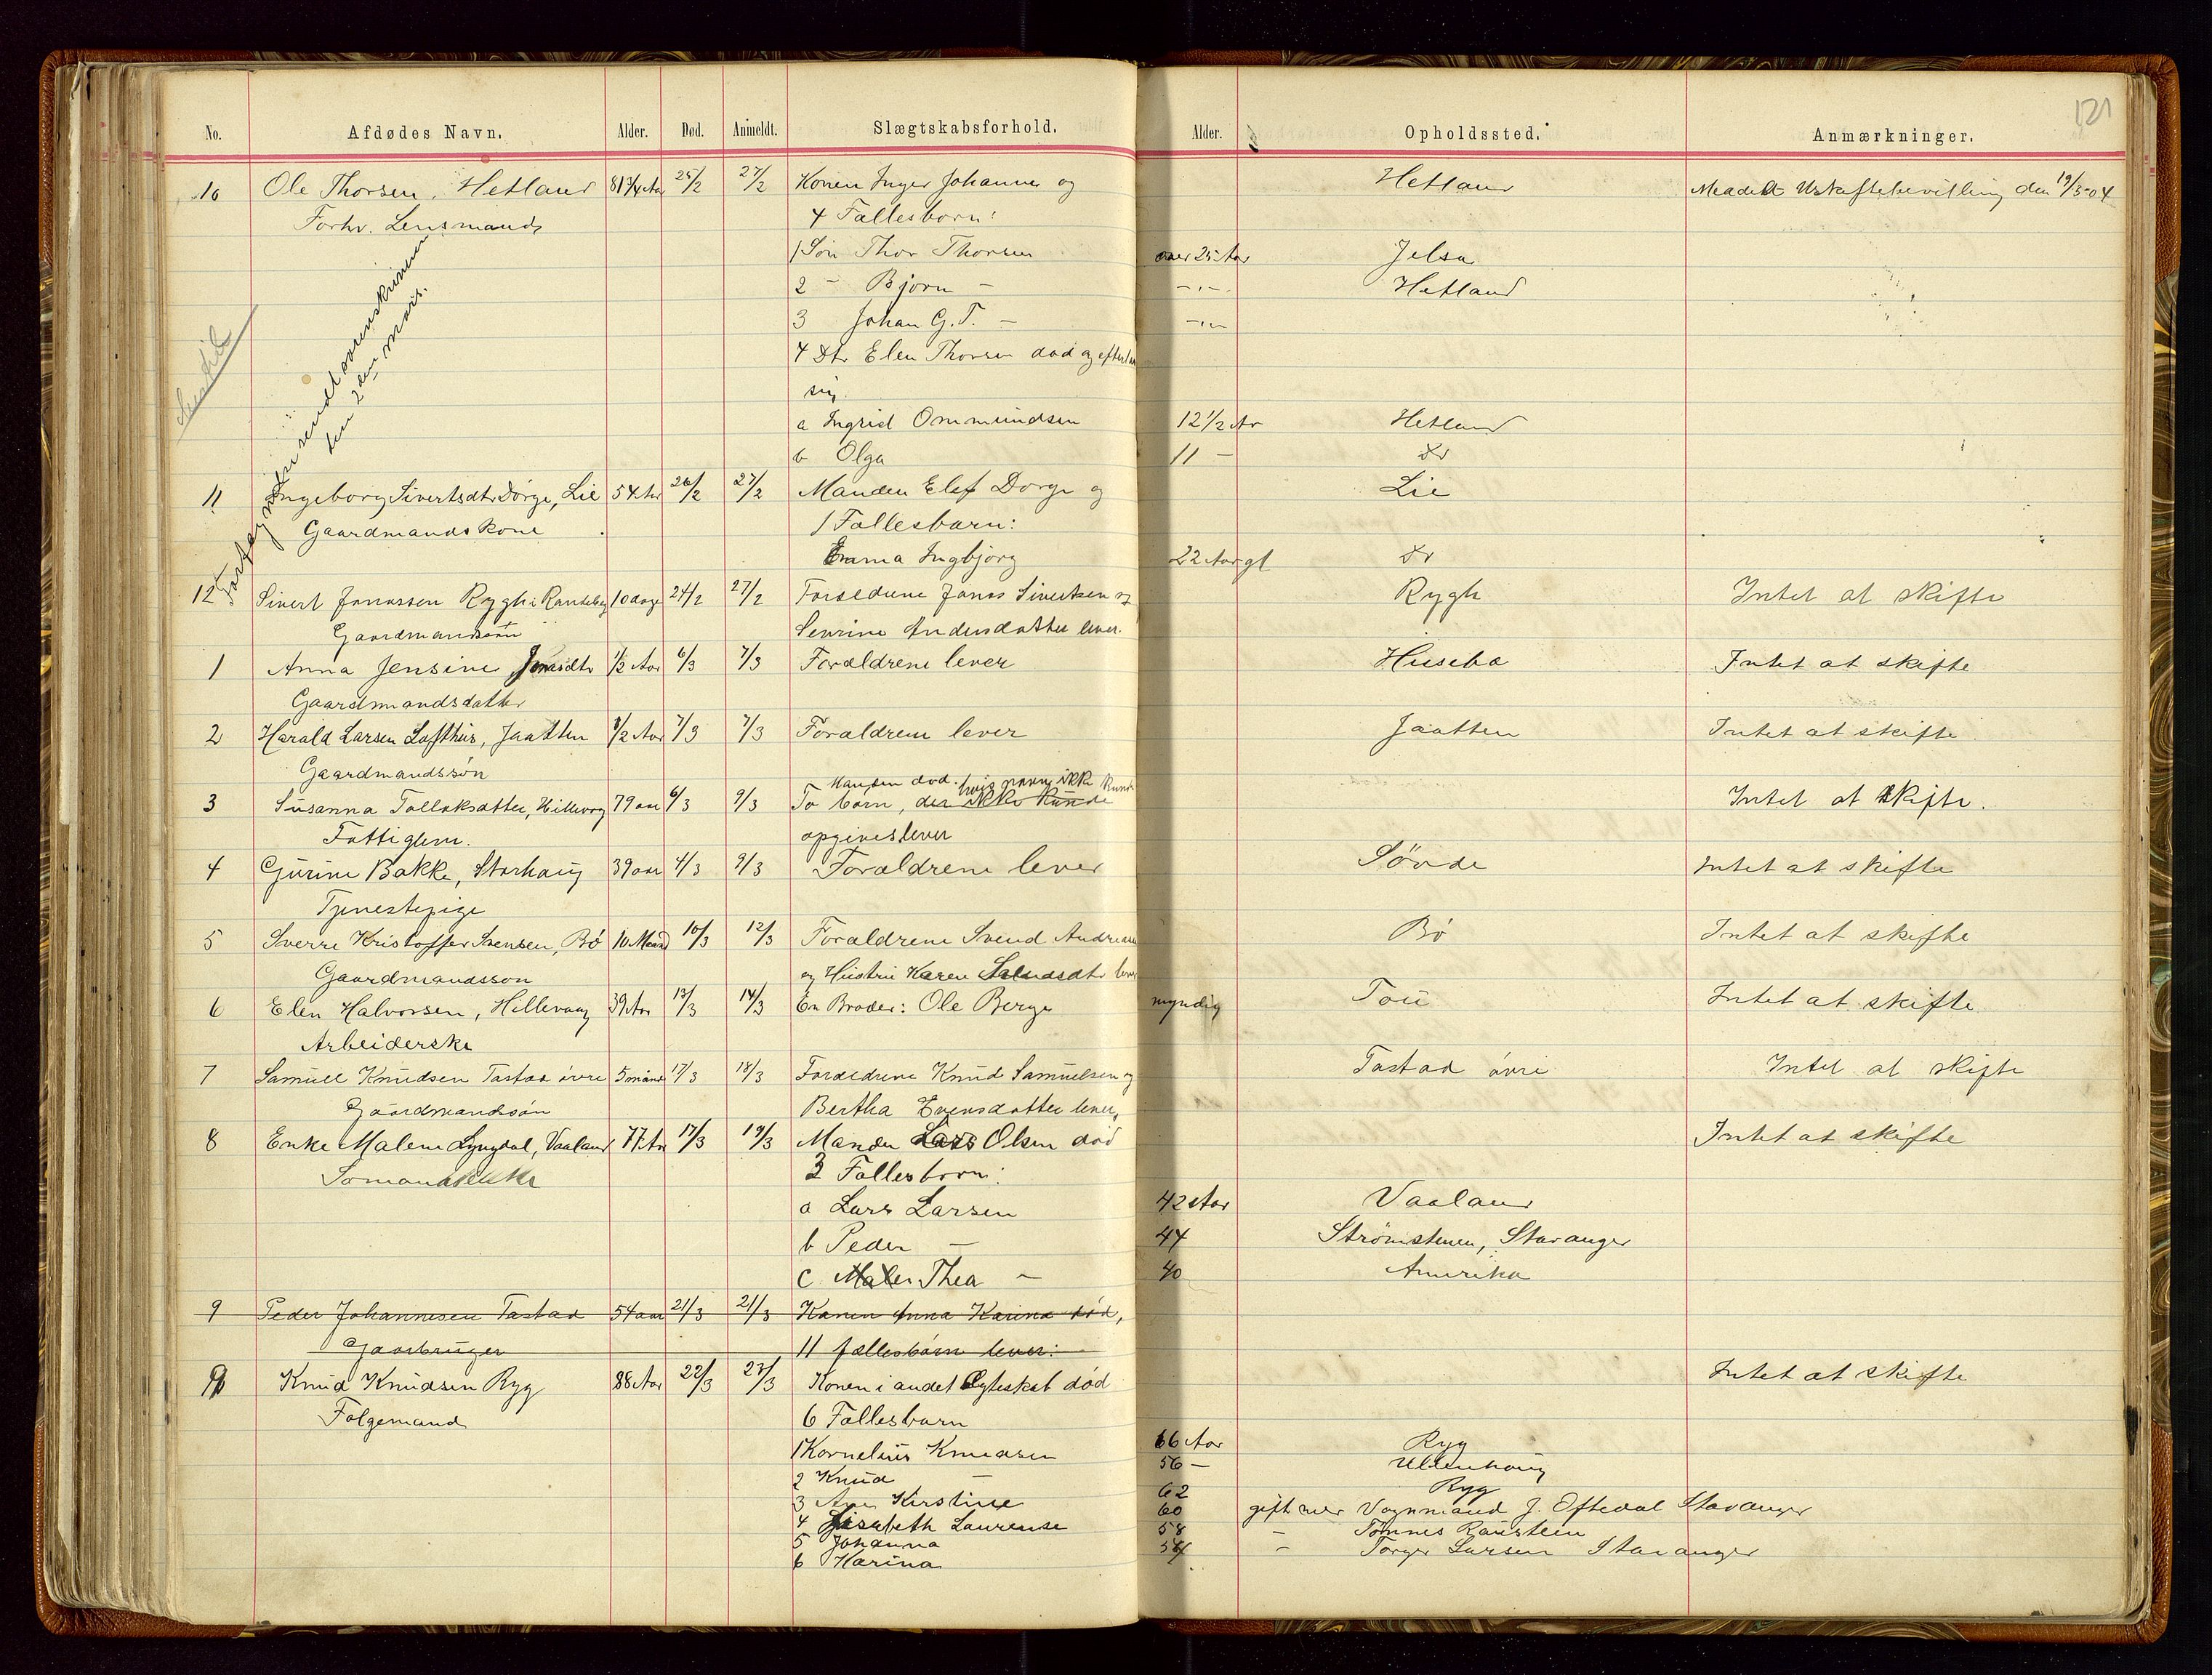 121
No. Afdødes Navn. Alder. Død. Anmeldt. Slægtskabsforhold. Alder. Opholdssted. Anmærkninger.
10 Ole Thorsen, Hetland 81 3/4 Aar 25/2 27/2 Konen Inger Johanne og Hetland Meddelt Uskiftebevilling den 19/3-04
Forhv. Lensmand 4 Fællesbørn:
1 Søn Thor Thorsen over 25 Aar Jelsa
2 - Bjørn - -"- Hetland
3 Johan G. T. - -"-
4 Dtr Elen Thorsen død og efterlad
sig
a Ingrid Ommundsen 12 1/2 Ar Hetland
b Olga 11 - Do
11 Ingeborg Sivertsdtr Dorge, Lie 54 Aar 26/2 27/2 Manden Elef Dorge og Lie
Gaardmandskone 1 Fællesbarn:
Emma Ingbjørg 22 Aar gl Do
12 Sivert Jonassen Rygh i Randeberg 10 dage 24/2 27/2 Forældrene Jonas Sivertsen og Rygh Intet at skifte
Gaardmandssøn Sevrine Andersdatter lever.
1 Anna Jensine Jonasdtr 1/2 Aar 6/3 7/3 Forældrene lever Husebø Intet at skifte
Gaardmandsdatter
2 Harald Larsen Lofthus, Jaatten 1/2 Aar 7/3 7/3 Forældrene lever Jaatten Intet at skifte
Gaardmandssøn
Manden død. hvis navn ikke kund
3 Susanna Tolloksdatter, Hillevaag 79 aar 6/3 9/3 To børn, der ikke kunde Intet at skifte.
Fattiglem. opgives lever
4 Gurine Bakke, Storhaug 39 aar 4/3 9/3 Forældrene lever Søvde Intet at skifte
Tjenestepige
5 Sverre Kristoffer Svensen, Bø 10 Maand 10/3 12/3 Forældrene Svend Andreasen Bø Intet at skifte
Gaardmandssøn og Hustru Karen Salvesdtr lever
6 Elen Halvorsen, Hillevaag 39 Aar 13/3 14/3 En Broder: Ole Berge myndig Tou Intet at skifte
Arbeiderske
7 Samuel Knudsen Tastad øvre 5 mand 17/3 18/3 Forældrene Knud Samuelsen og Tastad øvre Intet at skifte
Gaardmandssøn Bertha Evensdatter lever,
8 Enke Malene Lyngdal, Vaaland 77 Ar 17/3 19/3 Manden Lars Olsen død Intet at skifte
Sømandsenke 3 Fællesbørn:
a Lars Larsen 42 Aar Vaaland
b Peder - 44 Strømstenen, Stavanger
c Malen Thea - 40 Amerika
9 Peder Johannesen Tastad 54 aar 21/3 21/3 Konen Anna Karina død,
Gaarbruger 11 fællesbørn lever:
9 Knud Knudsen Ryg 88 Aar 22/3 23/3 Konen i andet Ægteskab død Intet at skifte
Følgemand 6 Fællesbarn
1 Kornelius Knudsen 66 Aar Ryg
2 Knud - 56 - Ullenhaug
3 Ane Kirstine 62 Ryg
4 Lisabeth Laurense 60 gift med Vognmand J. Oftedal Stavanger
5 Johanna 58 - Tønnes Raustein
6 Karina 54 - Torger Larsen Stavanger
den 2den marts.